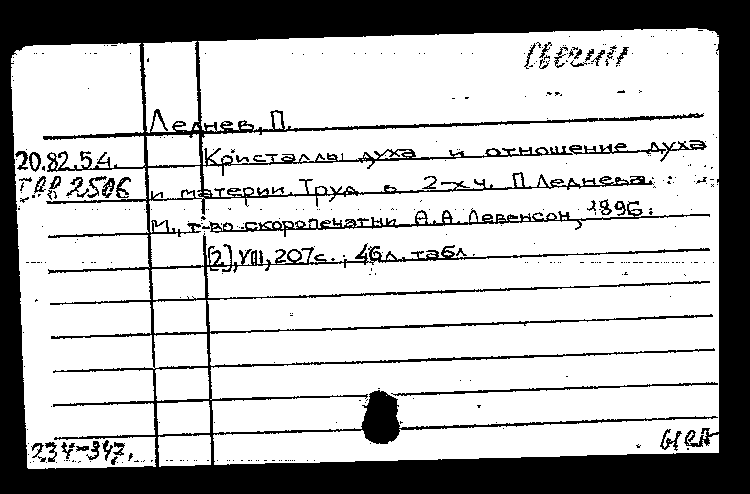 Свечин
Леднев, П.
20.82.5.4. Кристаллы духа и отношение духа
2506 и материи. Труд в 2-х ч. П. Леднева.
М., т-во скоропечатни А.А. Левенсон, 1896.
[2], VIII, 207 с.; 46 л. табл.
234-347.